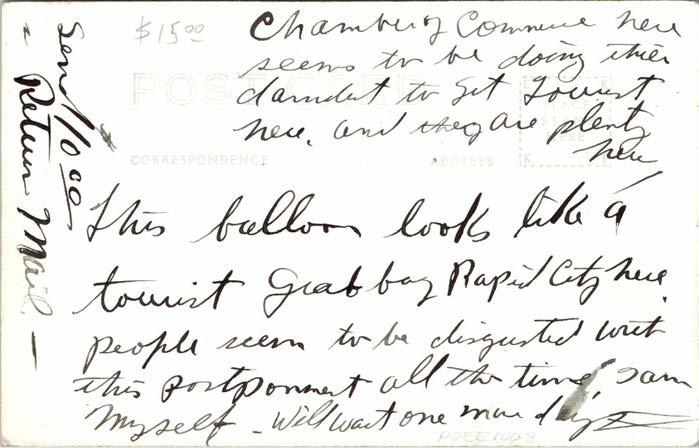 Send 10 00
- Return Mail -
$15 00
Chamber of Commerce here
seems to be doing thier
darndest to get Tourist
here. and they are plenty
here
POST CARD
PLACE
STAMP
HERE
CORRESPONDENCE
ADDRESS
This balloon looks like a
tourist Grab bag Rapid City here.
people seem to be disgusted with
this postponment all the time, I am
myself - Will wait one more day
POEE1003